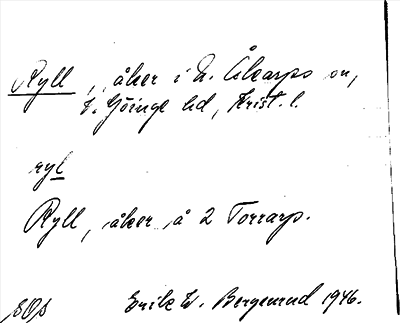 Ryll, åker i N. Åkarps sn,
V. Göinge hd, Krist. l.
ryl
Ryll, åker å 2 Torrarp.
Erik W. Bergenrud 1946.